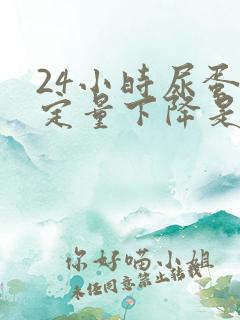 24小时尿蛋
定量下降是
你好喵小姐
未经同意禁止转载